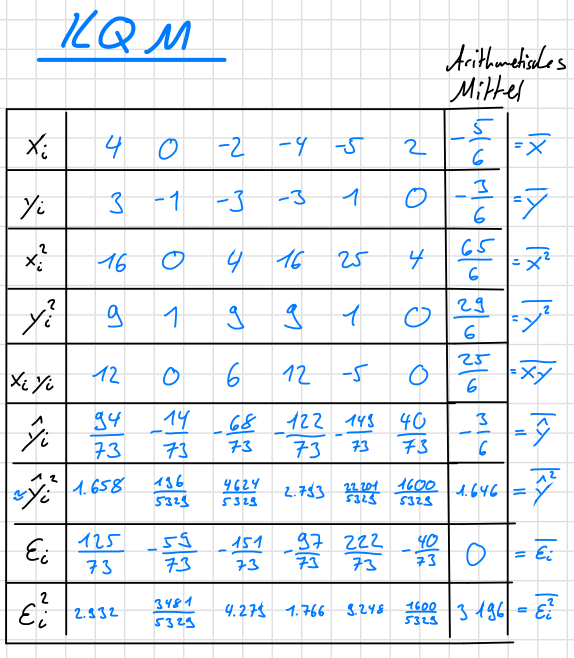 KQM
Arithmetisches
Mittel
xᵢ 4 0 -2 -4 -5 2 -5/6 = x̅
yᵢ 3 -1 -3 -3 1 0 -3/6 = y̅
xᵢ² 16 0 4 16 25 4 65/6 = x̅²
yᵢ² 9 1 9 9 1 0 29/6 = y̅²
xᵢ yᵢ 12 0 6 12 -5 0 25/6 = x̅y̅
ŷᵢ 94/73 -14/73 -68/73 -122/73 -149/73 40/73 -3/6 = ŷ̅
≈ŷᵢ² 1.658 196/5329 4624/5329 2.793 22201/5329 1600/5329 1.646 = ŷ̅²
εᵢ 125/73 -59/73 -151/73 -97/73 222/73 -40/73 0 = ε̅ᵢ
εᵢ² 2.932 3481/5329 4.279 1.766 9.248 1600/5329 3 196 = ε̅ᵢ²